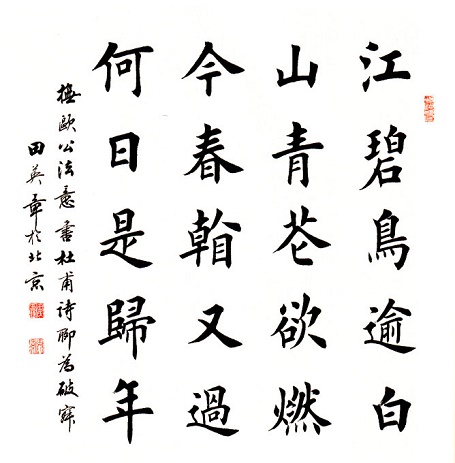 江碧鳥逾白
山青花欲燃
今春看又過
何日是歸年
撫歐公法意書杜甫诗聊為破寂
田英章於北京